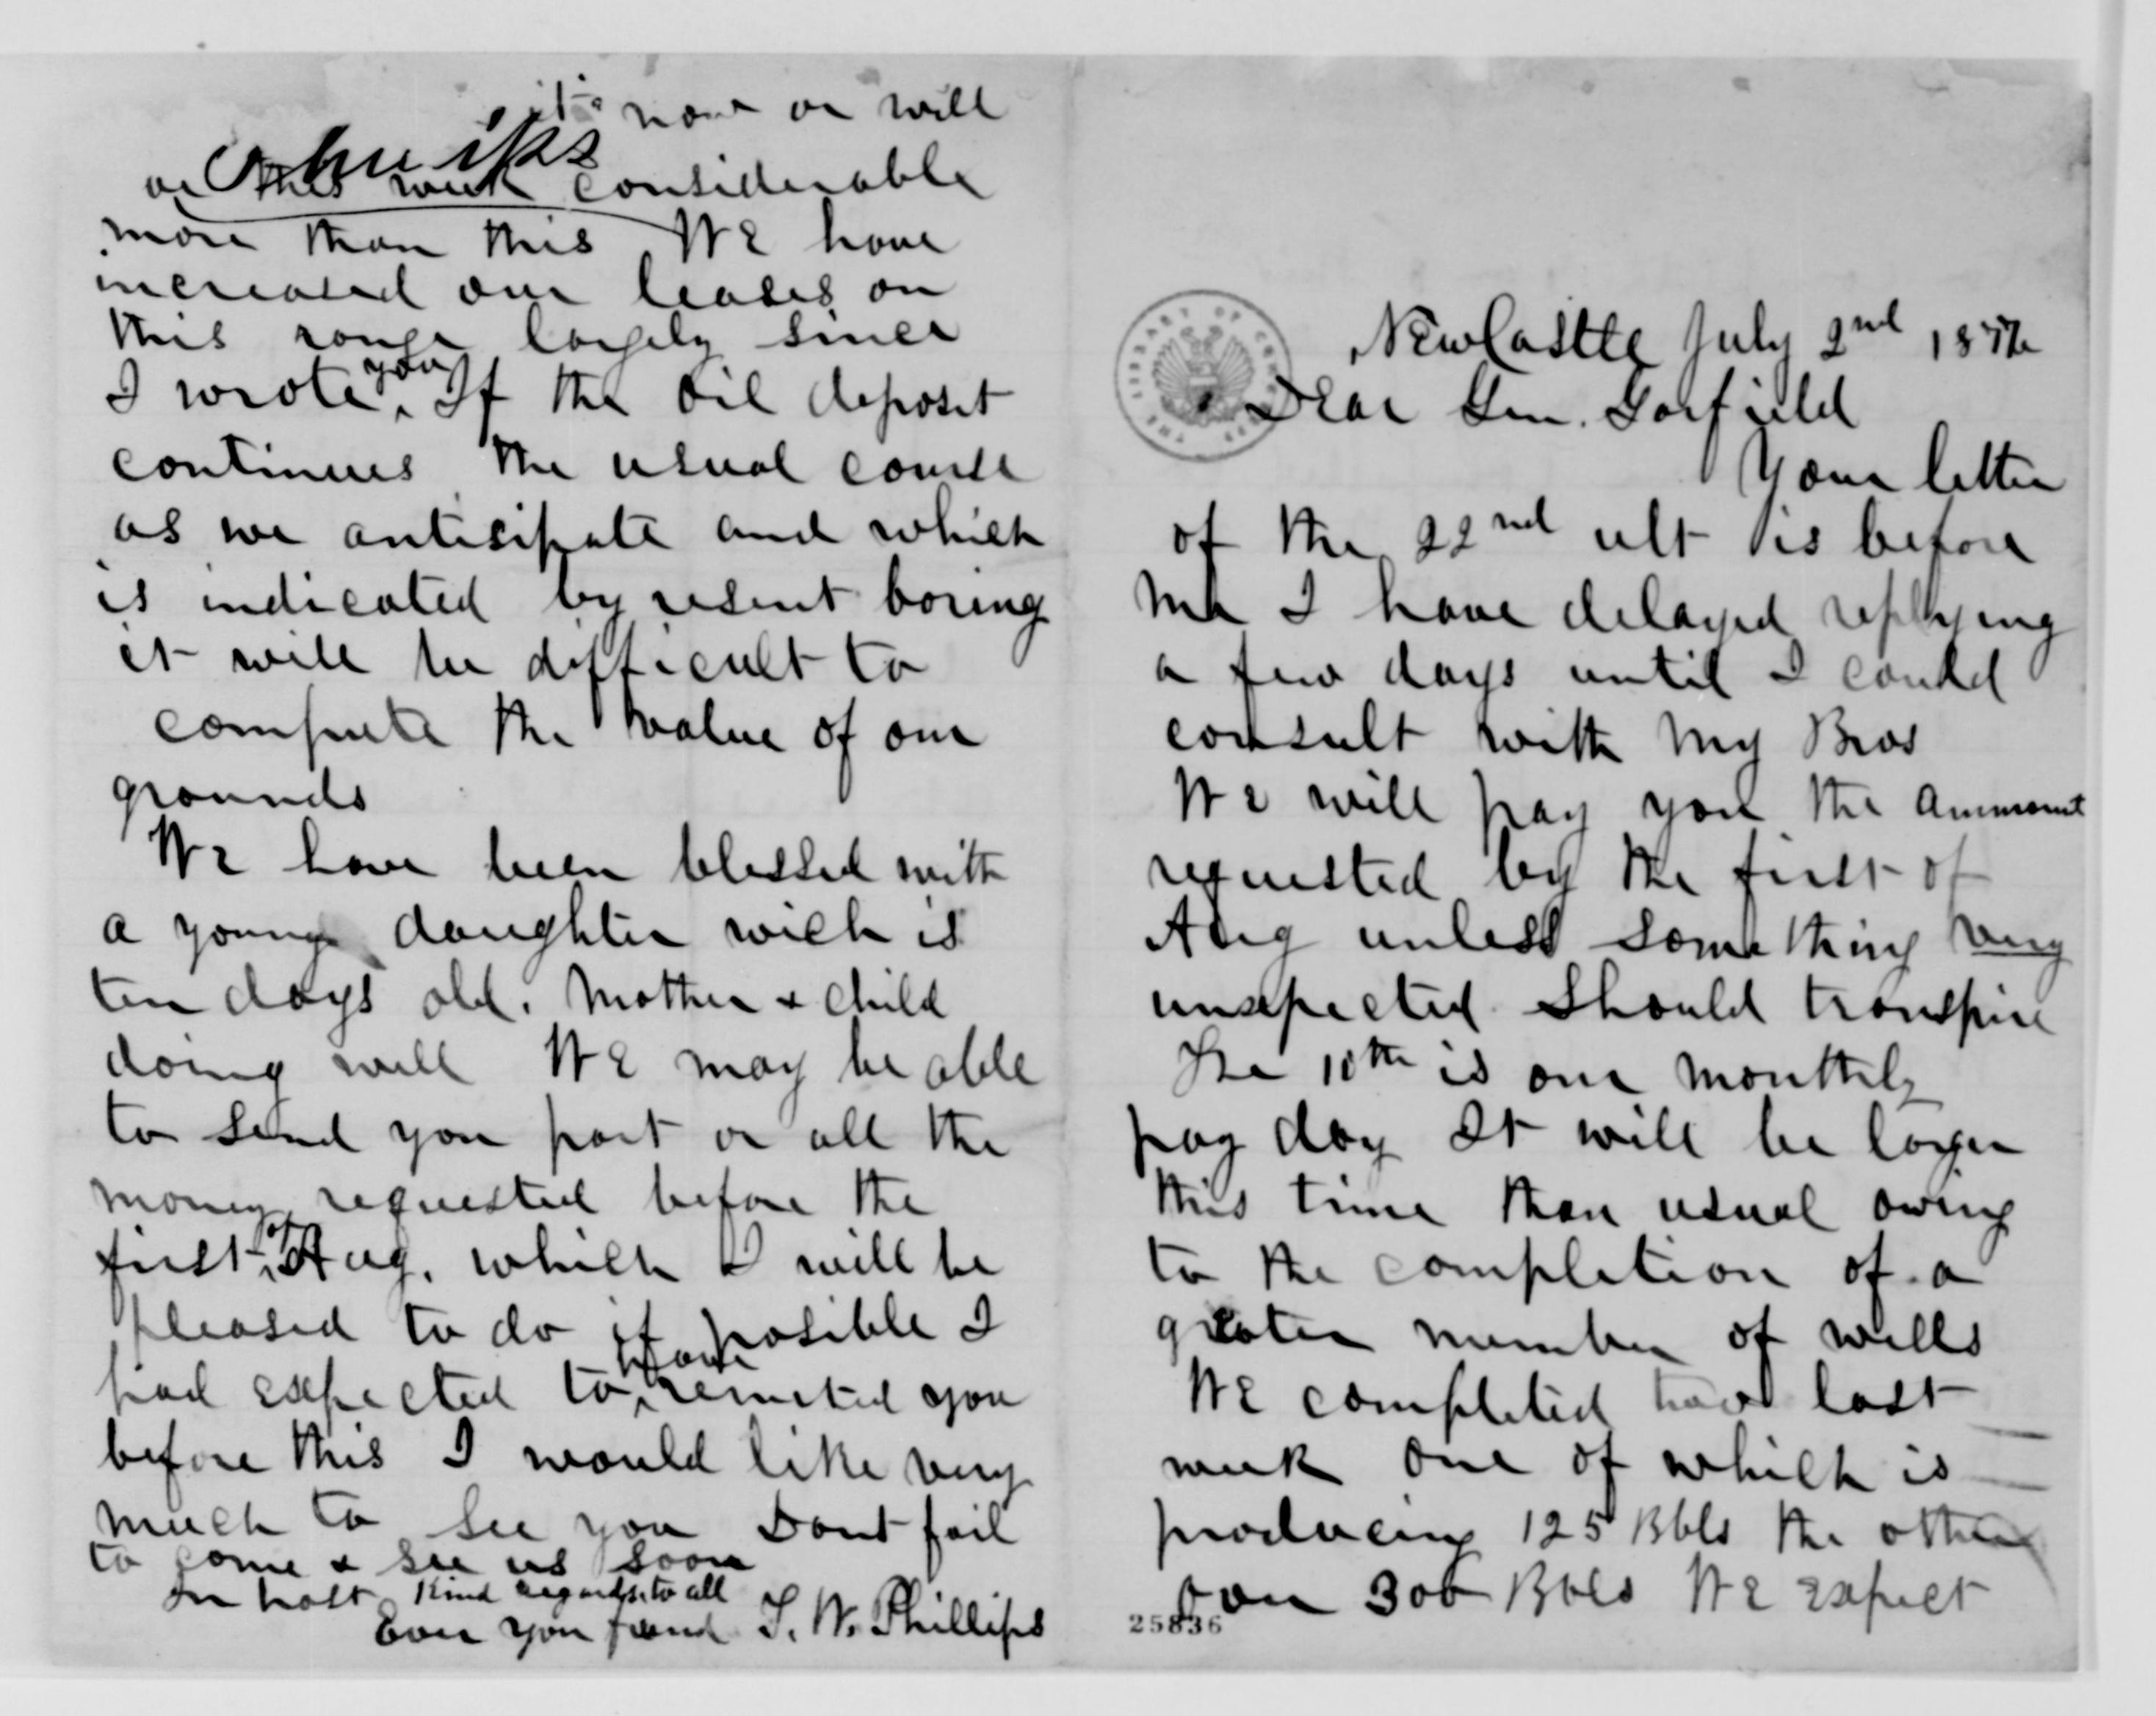 NewCastle July 2nd 187
Dear Gen. Garfield
Your letter
of the 22nd ult is before
me I have delayed replying
a few days until I could
consult with my Bros
We will pay you the ammount
requested by the first of
Aug unless something very
unexpected should transpire
The 10th is our monthly
pay day It will be larger
this time than usual owing
to the completion of a
greater number of wells
We completed two last
week one of which is
producing 125 Bbls the other
over 300 Bbls We expect
25836
it now or will
or this week considerable
more than this We have
increased our leases on
this range largely since
I wrote you. If the oil deposit
continues the usual course
as we anticipate and which
is indicated by resent boring
it will be difficult to
compute the value of our
grounds
We have been blessed with
a young daughter wich is
ten days old. Mother & child
doing well We may be able
to send you part or all the
money requested before the
first of Aug. which I will be
pleased to do if posible I
had expected to have remited you
before this I would like very
much to see you Dont fail
to come & see us soon
In hast Kind regards to all
Ever you friend T. W. Phillips